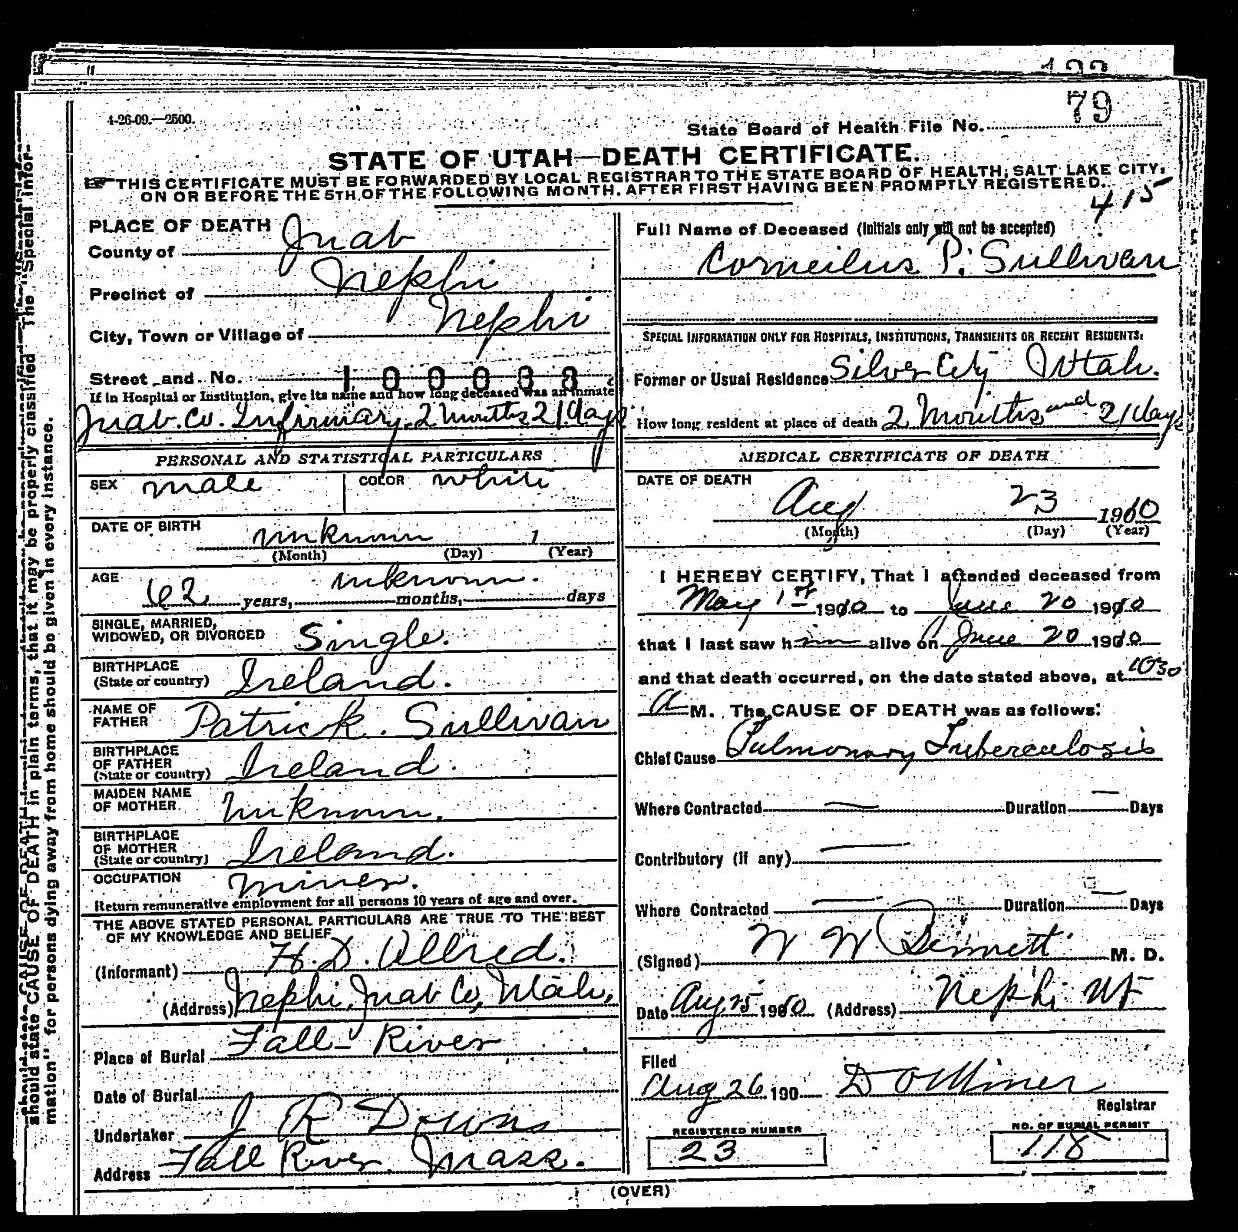 79
4-26-09.—2500.
State Board of Health File No.
STATE OF UTAH—DEATH CERTIFICATE.
THIS CERTIFICATE MUST BE FORWARDED BY LOCAL REGISTRAR TO THE STATE BOARD OF HEALTH, SALT LAKE CITY,
ON OR BEFORE THE 5TH OF THE FOLLOWING MONTH, AFTER FIRST HAVING BEEN PROMPTLY REGISTERED.
415
PLACE OF DEATH
County of Juab
Precinct of Nephi
City, Town or Village of Nephi
Street and No. 100088
If in Hospital or Institution, give its name and how long deceased was an inmate
Juab Co. Infirmary. 2 months 21 days
PERSONAL AND STATISTICAL PARTICULARS
SEX male COLOR white
DATE OF BIRTH unknown 1
(Month) (Day) (Year)
AGE 62 years, unknown. months, days
SINGLE, MARRIED,
WIDOWED, OR DIVORCED Single.
BIRTHPLACE
(State or country) Ireland.
NAME OF
FATHER Patrick. Sullivan
BIRTHPLACE
OF FATHER
(State or country) Ireland.
MAIDEN NAME
OF MOTHER. Unknown.
BIRTHPLACE
OF MOTHER
(State or country) Ireland.
OCCUPATION Miner.
Return remunerative employment for all persons 10 years of age and over.
THE ABOVE STATED PERSONAL PARTICULARS ARE TRUE TO THE BEST
OF MY KNOWLEDGE AND BELIEF
(Informant) H. D. Allred.
(Address) Nephi, Juab Co, Utah,
Place of Burial Fall River
Date of Burial
Undertaker J R Downs
Address Fall River. Mass.
Full Name of Deceased (Initials only will not be accepted)
Corneilus P. Sullivan
SPECIAL INFORMATION ONLY FOR HOSPITALS, INSTITUTIONS, TRANSIENTS OR RECENT RESIDENTS:
Former or Usual Residence Silver City Utah.
How long resident at place of death 2 Months and 21 days
MEDICAL CERTIFICATE OF DEATH
DATE OF DEATH
Aug 23 1910
(Month) (Day) (Year)
I HEREBY CERTIFY, That I attended deceased from
May 1st 1910 to June 20 1910
that I last saw him alive on June 20 1910
and that death occurred, on the date stated above, at 1030
A M. The CAUSE OF DEATH was as follows:
Chief Cause Pulmonary Tuberculosis
Where Contracted — Duration — Days
Contributory (if any) —
Where Contracted — Duration — Days
(Signed) W W Bennett. M. D.
Date Aug 25 1910 (Address) Nephi Ut
Filed
Aug 26 190 Registrar
REGISTERED NUMBER
23
NO. OF BURIAL PERMIT
118
(OVER)
should state CAUSE OF DEATH in plain terms, that it may be properly classified. The "Special Infor-
mation" for persons dying away from home should be given in every instance.